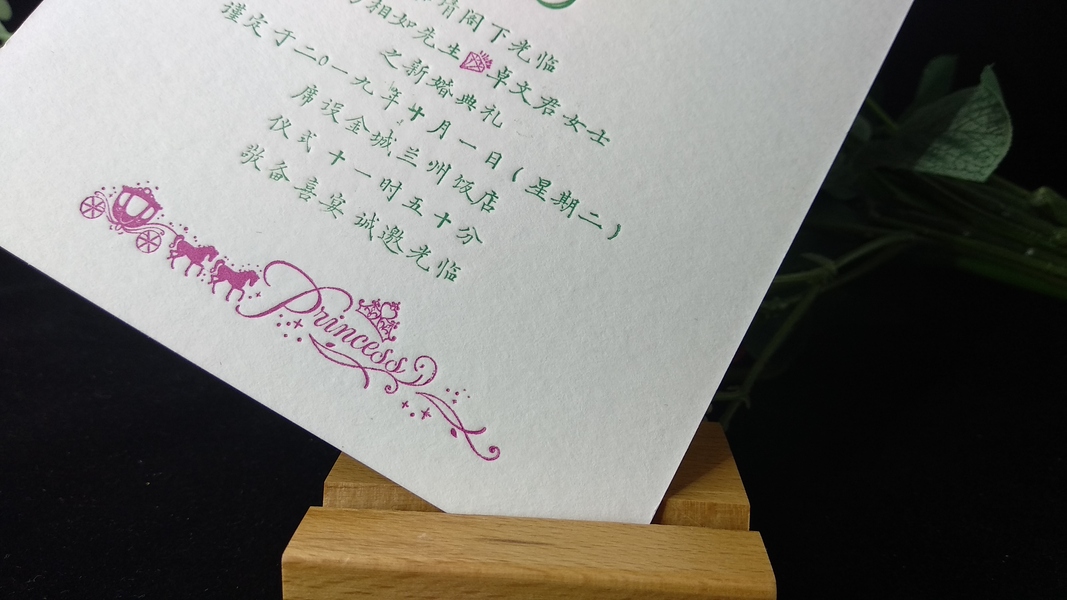 请阁下光临
相如先生 卓文君女士
之新婚典礼
谨定于二0一九年十月一日(星期二)
席设金城兰州饭店
仪式十一时五十分
敬备喜宴 诚邀光临
Princess